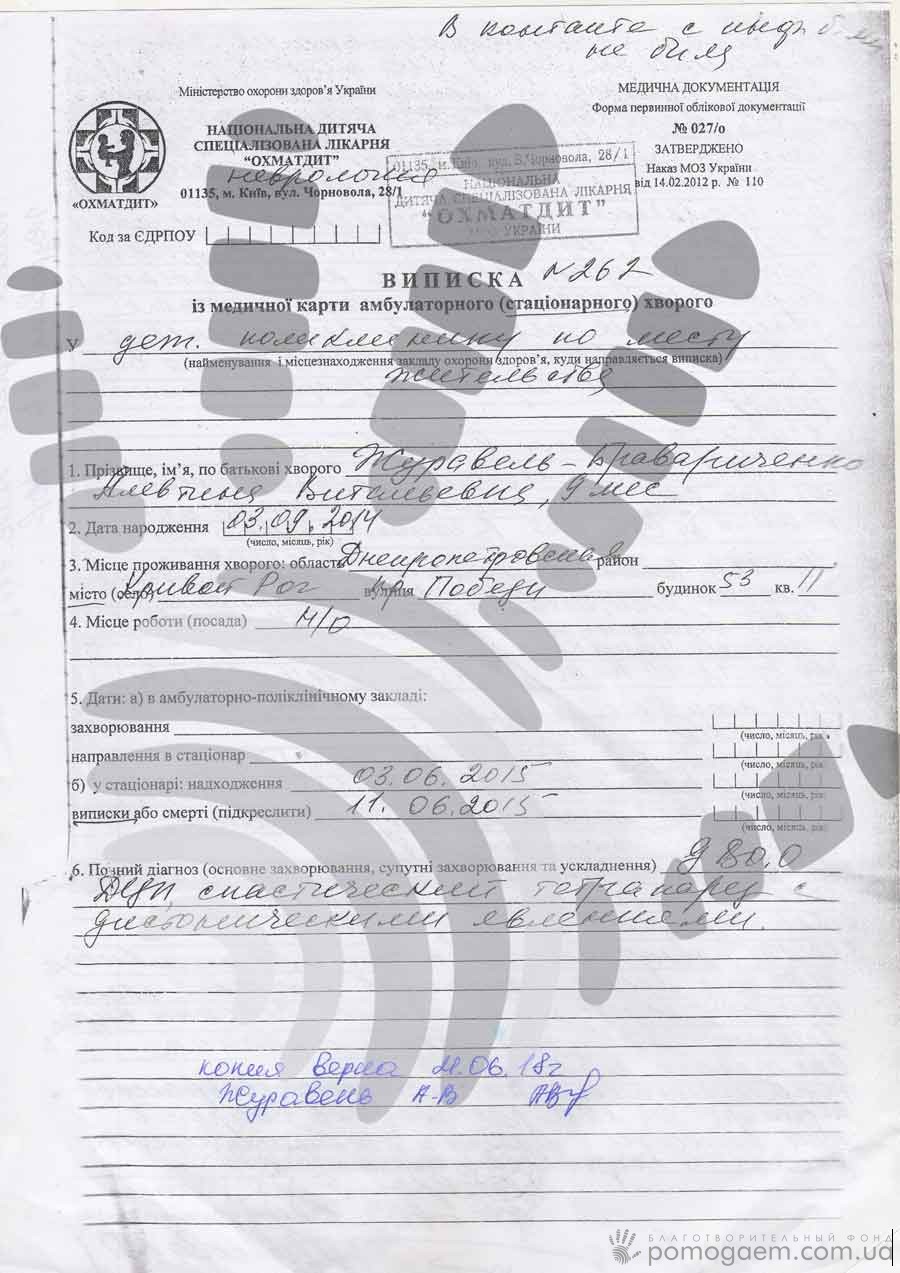 В контакте с инф. б-ми
не была
Міністерство охорони здоров'я України
НАЦІОНАЛЬНА ДИТЯЧА
СПЕЦІАЛІЗОВАНА ЛІКАРНЯ
"ОХМАТДИТ"
неврология
01135, м. Київ, вул. Чорновола, 28/1
"ОХМАТДИТ"
Код за ЄДРПОУ
МЕДИЧНА ДОКУМЕНТАЦІЯ
Форма первинної облікової документації
№ 027/о
ЗАТВЕРДЖЕНО
Наказ МОЗ України
від 14.02.2012 р. № 110
01135, м. Київ, вул. В.Чорновола, 28/1
НАЦІОНАЛЬНА
ДИТЯЧА СПЕЦІАЛІЗОВАНА ЛІКАРНЯ
"ОХМАТДИТ"
МОЗ УКРАЇНИ
ВИПИСКА N 262
із медичної карти амбулаторного (стаціонарного) хворого
У дет. поликлинику по месту
(найменування і місцезнаходження закладу охорони здоров'я, куди направляється виписка)
жительства
1. Прізвище, ім'я, по батькові хворого Журавель-
Алевтина Витальевна, 9 мес
2. Дата народження 03.09.2014
(число, місяць, рік)
3. Місце проживання хворого: область Днепропетровская район
місто (село) Кривой Рог вулиця пр Победы будинок 53 кв. 11
4. Місце роботи (посада) н/о
5. Дати: а) в амбулаторно-поліклінічному закладі:
захворювання
(число, місяць, рік)
направлення в стаціонар
(число, місяць, рік)
б) у стаціонарі: надходження 03.06.2015
(число, місяць, рік)
виписки або смерті (підкреслити) 11.06.2015
(число, місяць, рік)
6. Повний діагноз (основне захворювання, супутні захворювання та ускладнення) g 80.0
ДЦП, спастический тетрапарез с
дистоническими явлениями.
копия верна 21.06.18г
Журавель А-В
БЛАГОТВОРИТЕЛЬНЫЙ ФОНД
pomogaem.com.ua